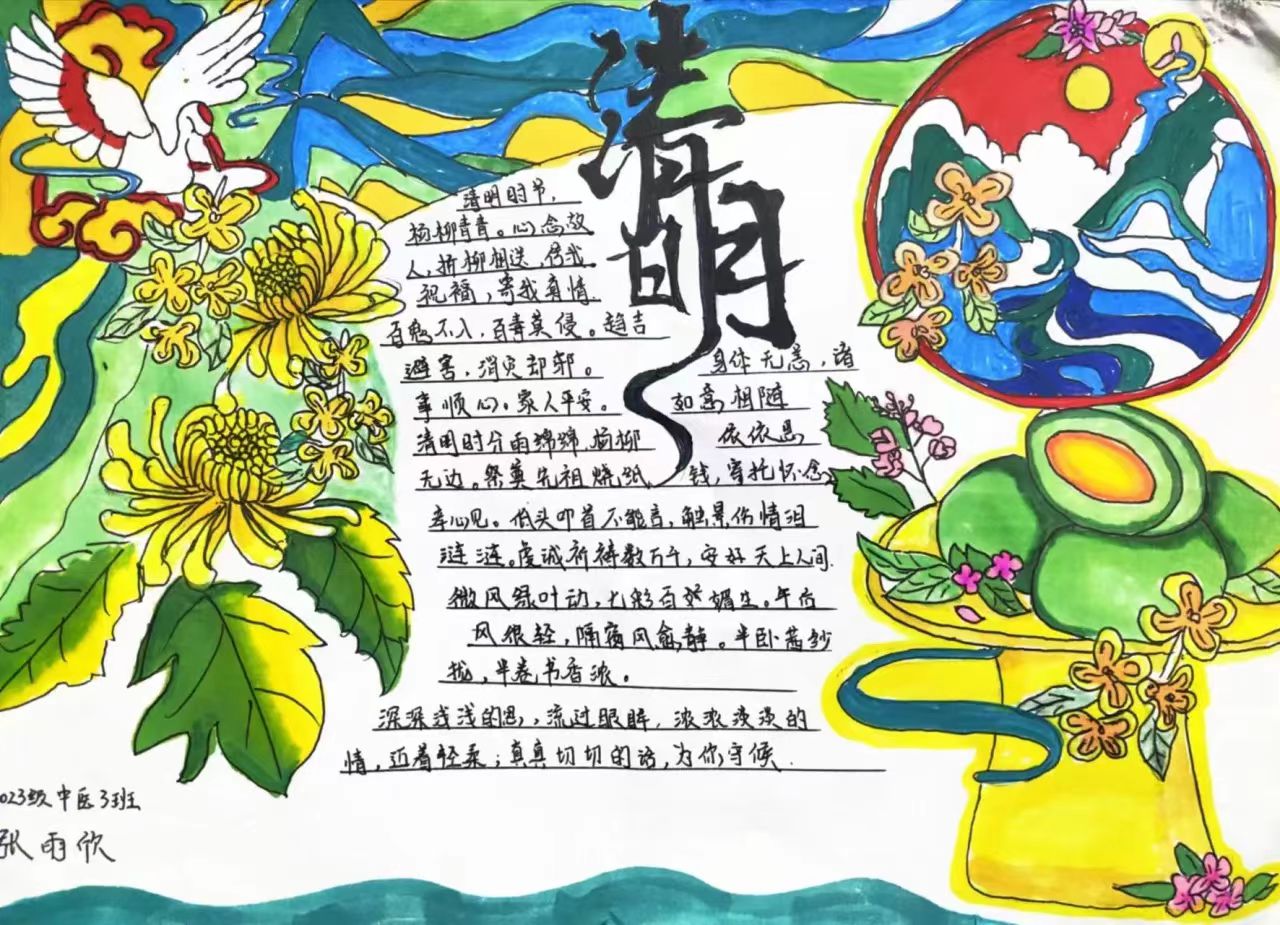 清明
清明时节，
杨柳青青。心念故
人，折柳相送，传我
祝福，寄我真情.
百鬼不入，百毒莫侵。趋吉
避害，消灾却邪。
身体无恙，诸
事顺心。家人平安。
如意相随
清明时分雨绵绵，杨柳
依依思
无边。祭奠先祖烧纸
钱，寄托怀念
在心见。低头叩首不能言，触景伤情泪
涟涟。虔诚祈祷数万千，安好天上人间.
微风绿叶动，七彩百花媚生。午后
风很轻，隔窗风愈静。半卧茜纱
拢，半卷书香浓。
深深浅浅的思，流过眼眸，浓浓淡淡的
情，近着轻柔；真真切切的话，为你守候.
023级中医3班
张雨欣